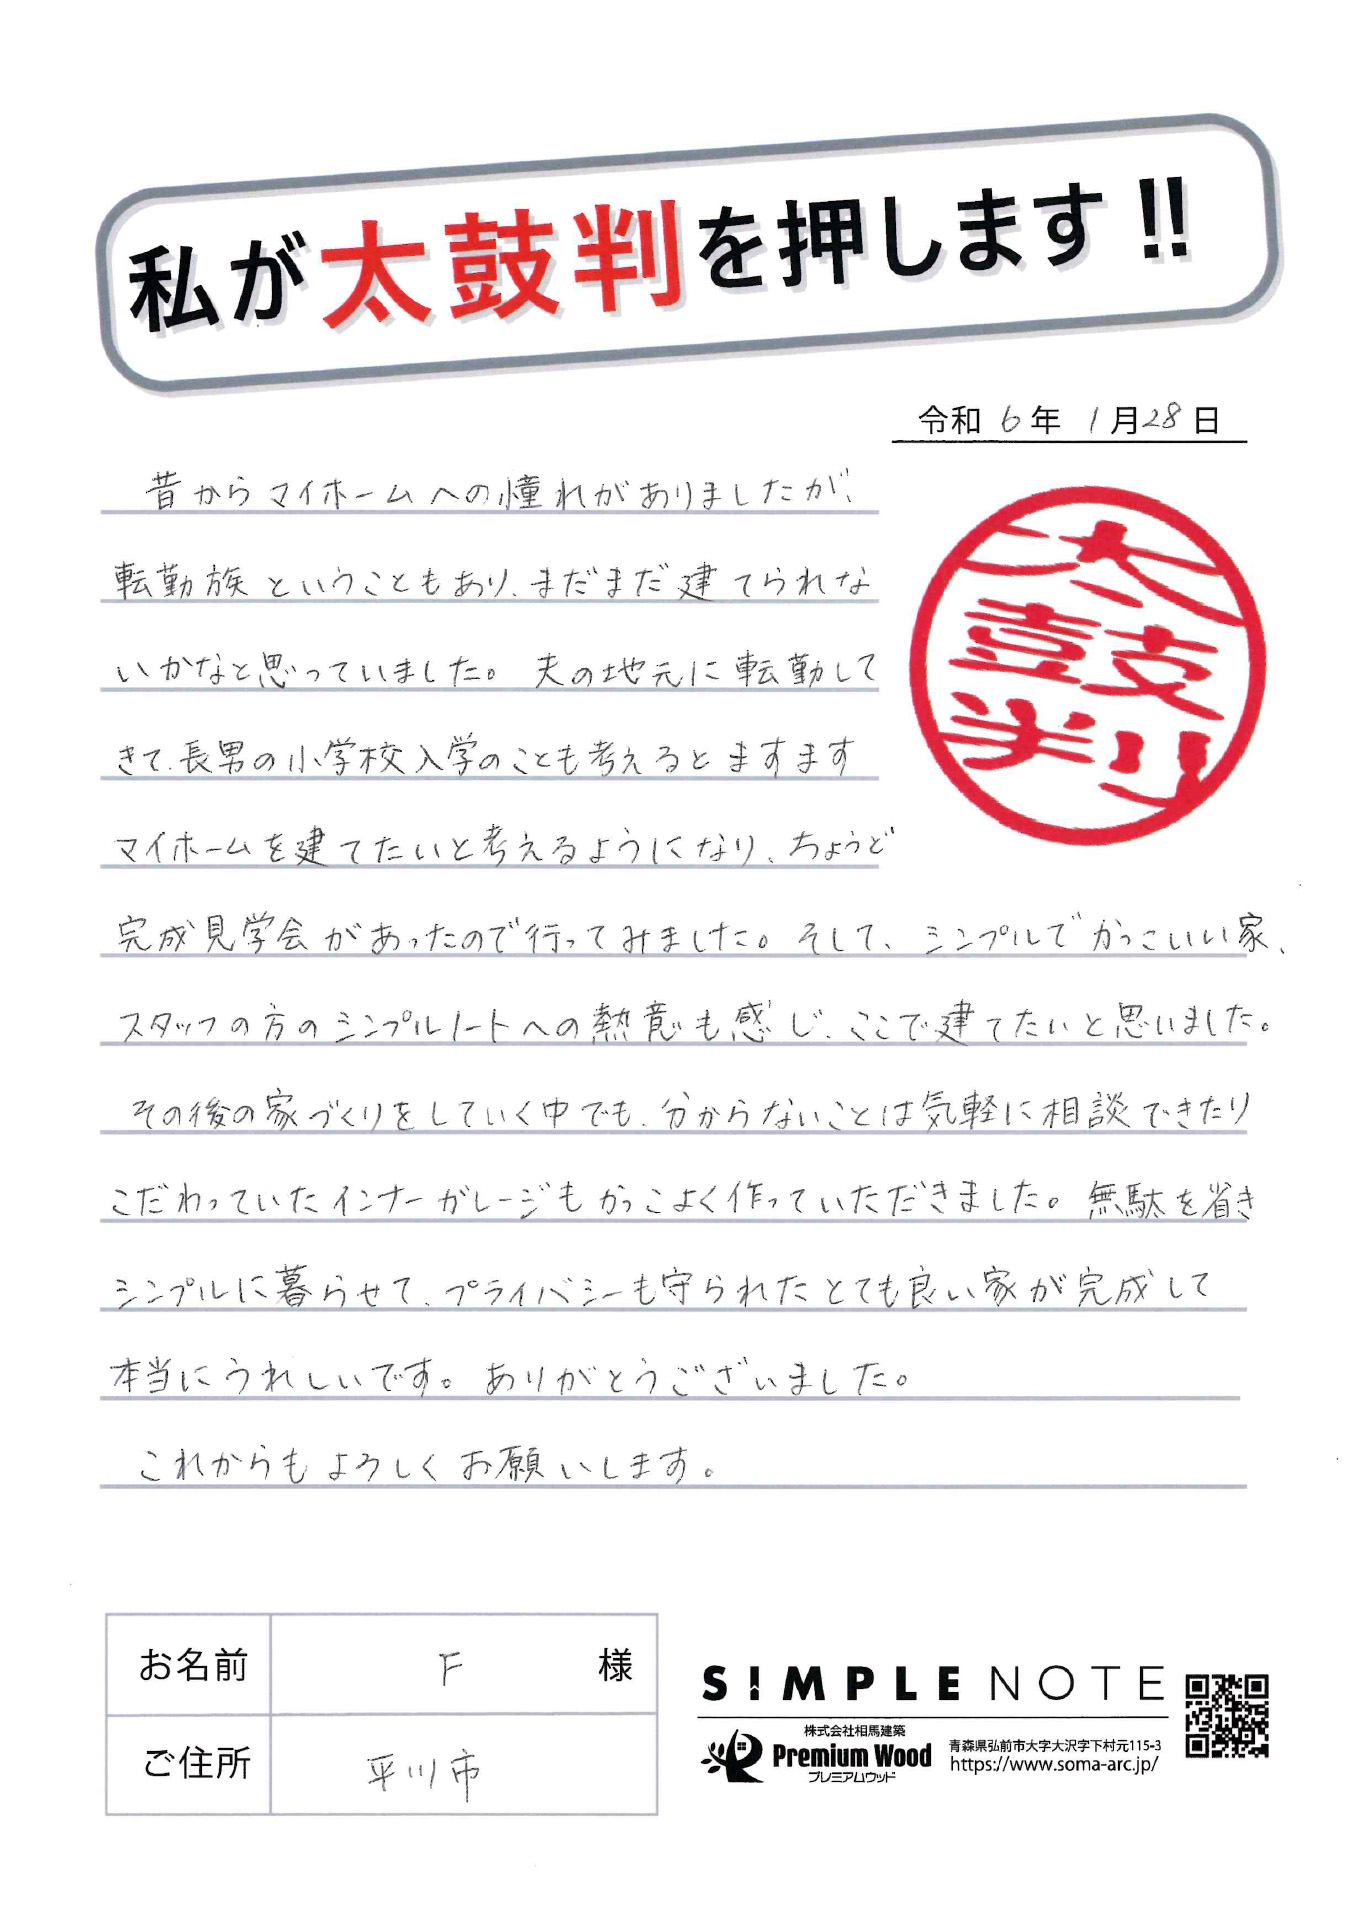 私が太鼓判を押します!!
令和 6年 1月28日
昔からマイホームへの憧れがありましたが、
転勤族ということもあり、まだまだ建てられな
いかなと思っていました。夫の地元に転勤して
きて、長男の小学校入学のことも考えるとますます
マイホームを建てたいと考えるようになり、ちょうど
太鼓判
完成見学会があったので行ってみました。そして、シンプルでかっこいい家、
スタッフの方のシンプルノートへの熱意も感じ、ここで建てたいと思いました。
その後の家づくりをしていく中でも、分からないことは気軽に相談できたり
こだわっていたインナーガレージもかっこよく作っていただきました。無駄を省き
シンプルに暮らせて、プライバシーも守られたとても良い家が完成して
本当にうれしいです。ありがとうございました。
これからもよろしくお願いします。
お名前 F 様
ご住所 平川市
SIMPLE NOTE
株式会社相馬建築
Premium Wood
プレミアムウッド
青森県弘前市大字大沢字下村元115-3
https://www.soma-arc.jp/